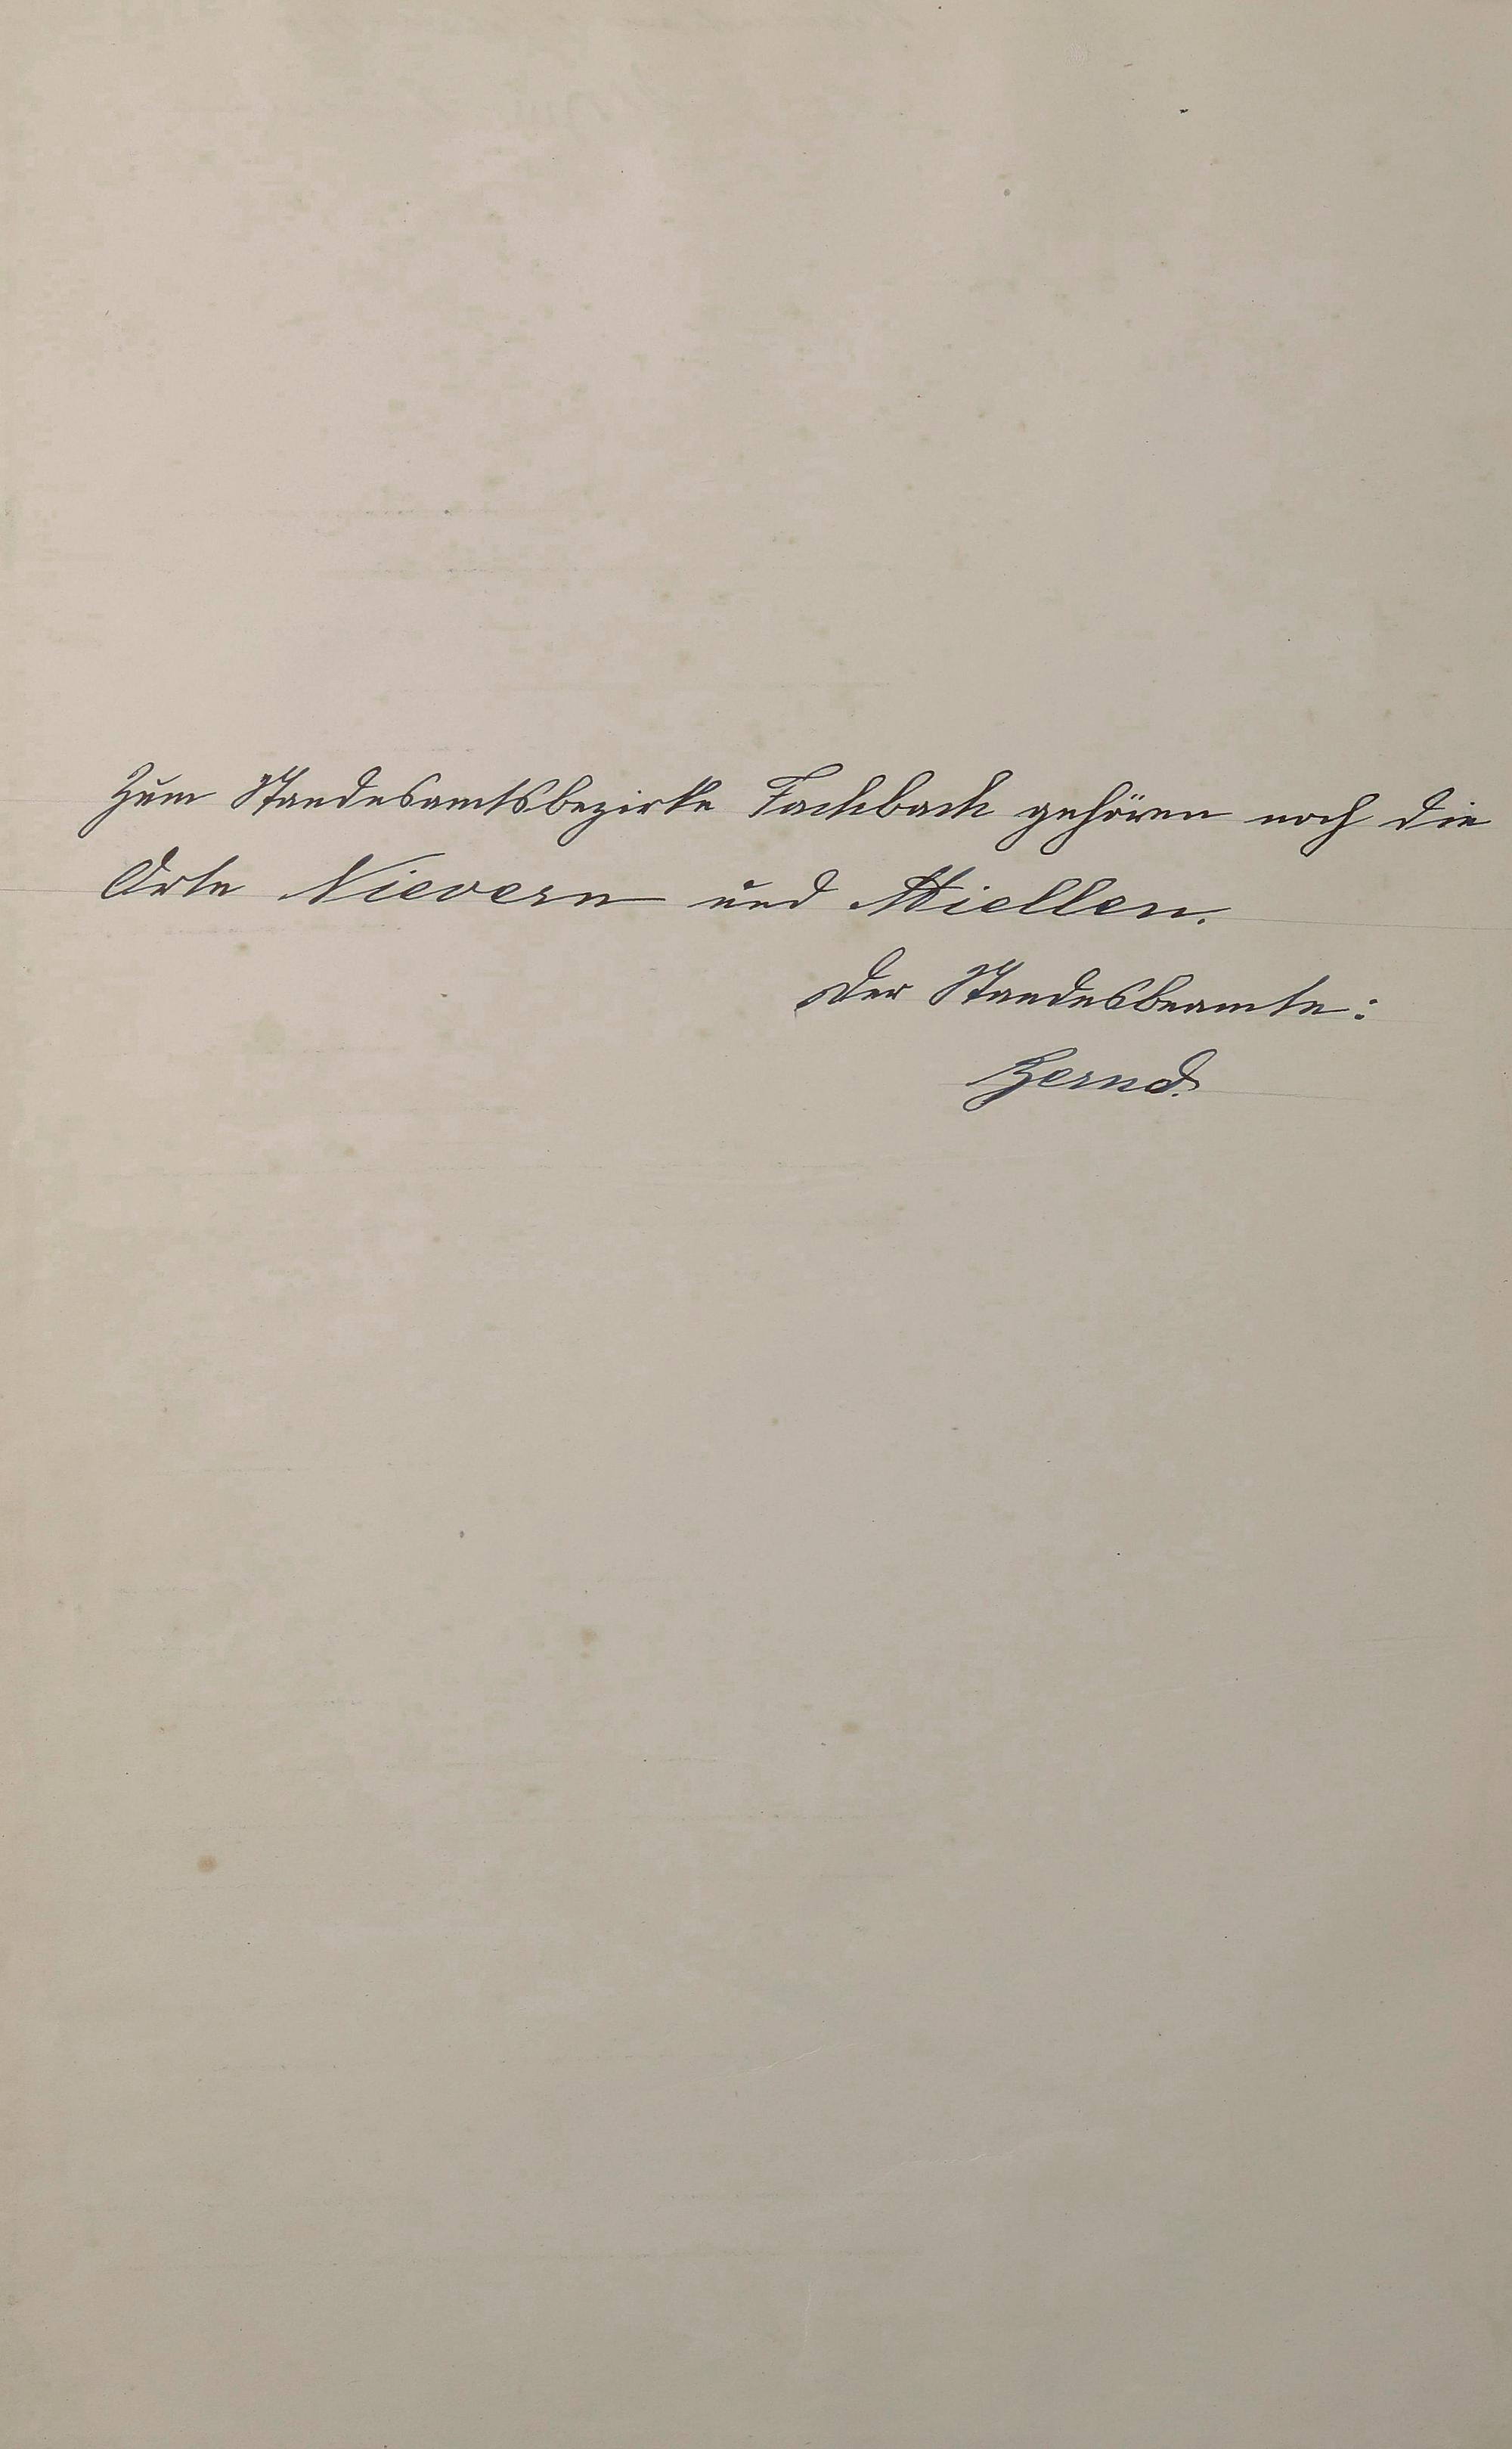 Zum Standesamtsbezirke Fachbach gehören noch die
Orte Nievern und Miellen.
Der Standesbeamte:
Zernd.